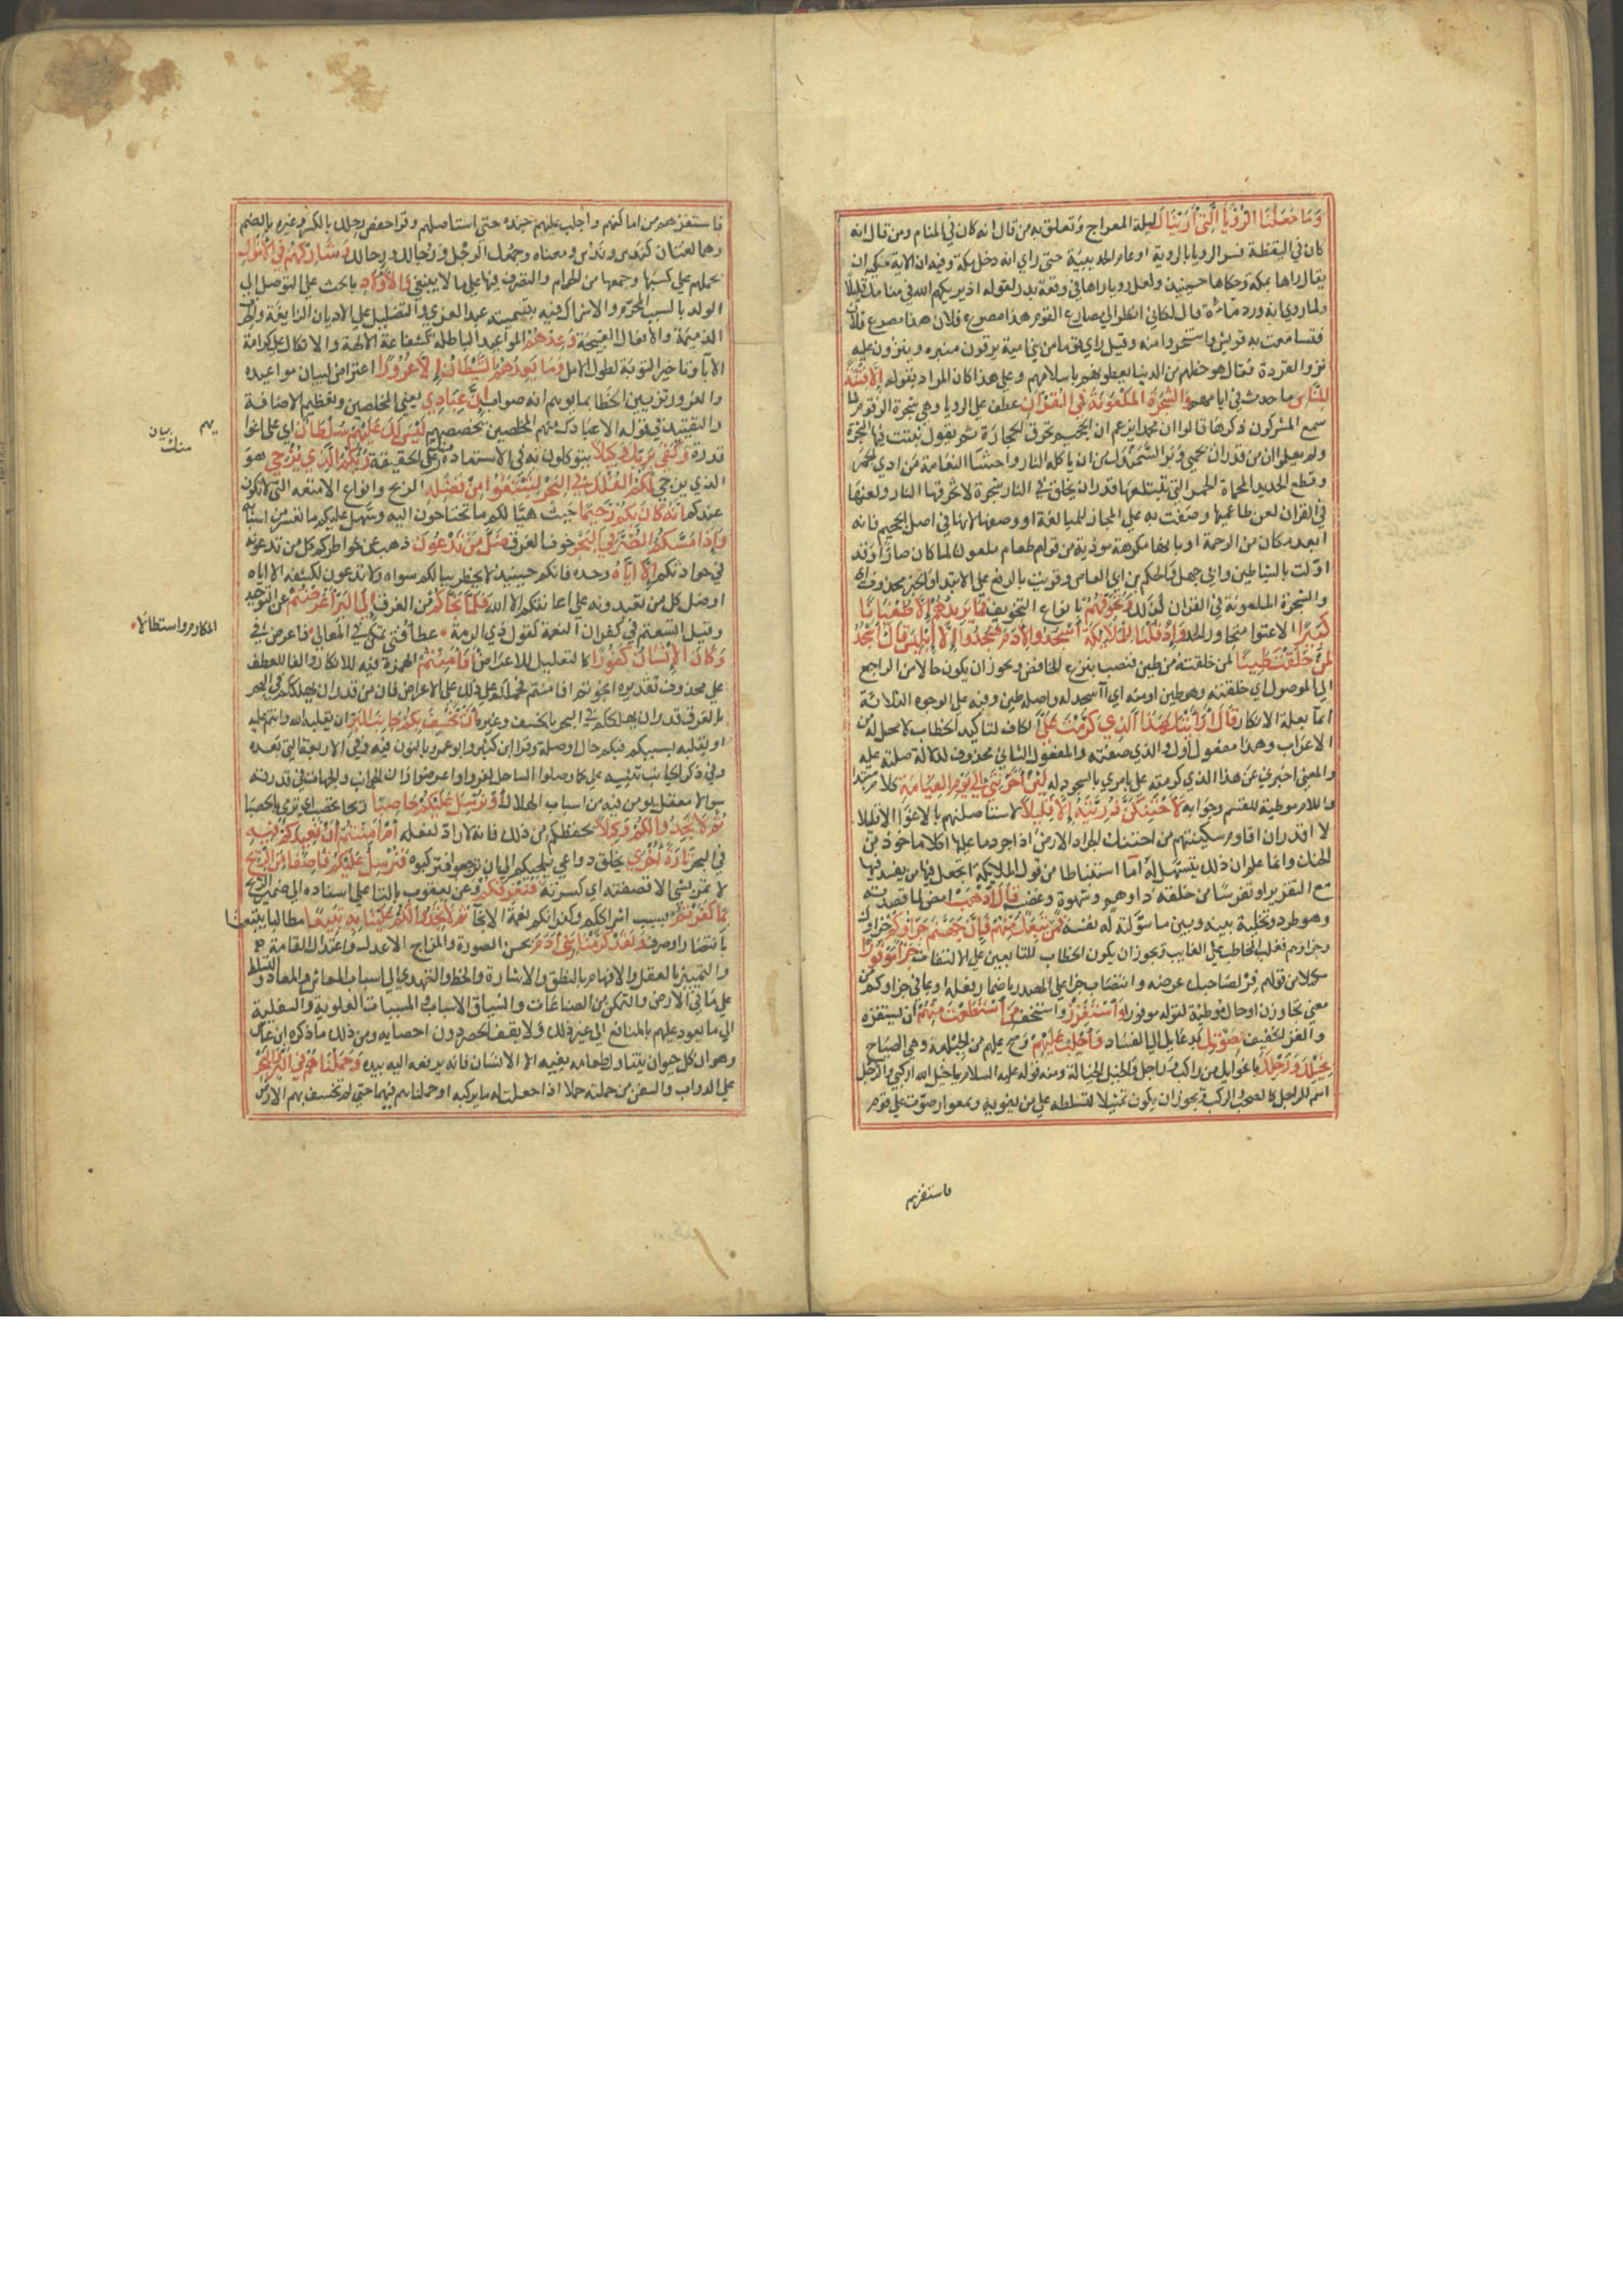 وَمَا جَعَلْنَا الرُّؤْيَا الَّتِي أَرَيْنَاكَ ليلة المعراج وتعلق به من قال انه كان في المنام ومن قال انه
كان في اليقظة فسر الرويا بالروية او عام الحديبية حتى راي انه دخل مكة وفيه ان الاية مكية الا ان
يقال راها بمكة وحكاها حينيذ ولعل رويا راها في وقعة بدر لقوله اذ يريكهم الله في منامك قليلا
ولما روي انه ورد ماءه قال لكاني انظر الي مصارع القوم هذا مصرع فلان هذا مصرع فلان
فتسامعت به قريش واستسخروا منه وقيل راي قوما من بني امية يرقون منبره وينزون عليه
نزو القردة فقال هو حظهم من الدنيا يعطونه باسلامهم وعلى هذا كان المراد بقوله إِلَّا فِتْنَةً
لِلنَّاسِ ما حدث في ايامهم وَالشَّجَرَةَ الْمَلْعُونَةَ فِي الْقُرْآنِ عطف علي الرويا وهي شجرة الزقوم لما
سمع المشركون ذكرها قالوا ان محمدا يزعم ان الجحيم تحرق الحجارة ثم يقول ينبت فيها الشجر
ولم يعلموا ان من قدر ان يحمي وبر السمندل من ان ياكله النار واحشا النعامة من اذي الجمر
وقطع الحديد المحماة الحمر التي تبتلعها قدر ان يخلق في النار شجرة لا تحرقها النار ولعنها
في القران لعن طاعميها وصفت به علي المجاز للمبالغة او وصفها لانها في اصل الجحيم فانه
ابعد مكان من الرحمة او بانها مكروهة موذية من قولهم طعام ملعون لما كان ضارا وقد
اولت بالشياطين وابي جهل والحكم بن ابي العاص وقريت بالرفع علي الابتدا والخبر محذوف اي
والشجرة الملعونة في القران كذلك وَنُخَوِّفُهُمْ بانواع التخويف فَمَا يَزِيدُهُمْ إِلَّا طُغْيَانًا
كَبِيرًا الا عتوا متجاوز الحد وَإِذْ قُلْنَا لِلْمَلَائِكَةِ اسْجُدُوا لِآدَمَ فَسَجَدُوا إِلَّا إِبْلِيسَ قَالَ أَأَسْجُدُ
لِمَنْ خَلَقْتَ طِينًا لمن خلقته من طين فنصب بنزع الخافض ويجوز ان يكون حالا من الراجع
الي الموصول اي خلقته وهو طين او منه اي ااسجد له واصله طين وفيه علي الوجوه الثلاثة
ايما بعلة الانكار قَالَ أَرَأَيْتَكَ هَذَا الَّذِي كَرَّمْتَ عَلَيَّ الكاف لتاكيد الخطاب لا محل له من
الاعراب وهذا مفعول اول والذي صفته والمفعول الثاني محذوف لدلالة صلته عليه
والمعني اخبرني عن هذا الذي كرمته علي بامري بالسجود له لَئِنْ أَخَّرْتَنِي إِلَى يَوْمِ الْقِيَامَةِ كلام مبتدا
واللام موطية للقسم وجوابه لَأَحْتَنِكَنَّ ذُرِّيَّتَهُ إِلَّا قَلِيلًا لاستاصلنهم بالاغوا الا قليلا
لا اقدر ان اقاوم سكينتهم من احتنك الجراد الارض اذا جرد ما عليها اكلا ماخوذ من
الحنك وانما علم ان ذلك يتسهل له اما استنباطا من قول الملايكة اتجعل فيها من يفسد فيها
مع التقرير او تفرسا من خلقه ذا وهم وشهوة وغضب قَالَ اذْهَبْ امض لما قصدته
وهو طرد وتخلية بينه وبين ما سولته له نفسه فَمَنْ تَبِعَكَ مِنْهُمْ فَإِنَّ جَهَنَّمَ جَزَاؤُكُمْ جزاوك
وجزاوهم فغلب المخاطب علي الغايب ويجوز ان يكون الخطاب للتابعين علي الالتفات جَزَاءً مَوْفُورًا
مكملا من قولهم فر لصاحبك عرضه وانتصاب جزا علي المصدر باضمار فعله او بما في جزاوكم من
معني تجازون او حال موطية لقوله موفورا وَاسْتَفْزِزْ واستخف مَنِ اسْتَطَعْتَ مِنْهُمْ ان تستفزه
والفز الخفيف بِصَوْتِكَ بدعايك الي الفساد وَأَجْلِبْ عَلَيْهِمْ وصح عليهم من الجلبة وهي الصياح
بِخَيْلِكَ وَرَجِلِكَ باعوانك من راكب وراجل والخيل الخيالة ومنه قوله عليه السلام يا خيل الله اركبي والرجل
اسم للراجل كالصحب والركب ويجوز ان يكون تمثيلا لتسلطه علي من يغويه بمغوار صوت علي قوم
فاستفزهم
فاستفزهم من اماكنهم واجلب عليهم بجنده حتى استاصلهم وقرا حفص ورجلك بالكسر وغيره بالضم
وهما لغتان كندس وندس ومعناه وجمعك الرجل ورجالك ورجالك وَشَارِكْهُمْ فِي الْأَمْوَالِ
بحملهم علي كسبها وجمعها من الحرام والتصرف فيها علي ما لا ينبغي وَالْأَوْلَادِ بالحث علي التوصل الي
الولد بالسبب المحرم والاشراك فيه بتسميته عبد العزي والتضليل علي الاديان الزايغة والحرف
الذميمة والافعال القبيحة وَعِدْهُمْ المواعيد الباطلة كشفاعة الالهة والاتكال علي كرامة
الابا وتاخير التوبة لطول الامل وَمَا يَعِدُهُمُ الشَّيْطَانُ إِلَّا غُرُورًا اعتراض لبيان مواعيده
والغرور تزيين الخطا بما يوهم انه صواب إِنَّ عِبَادِي يعني المخلصين وتعظيم الاضافة
والتقييد في قوله الا عبادك منهم المخلصين تخصصهم لَيْسَ لَكَ عَلَيْهِمْ سُلْطَانٌ اي علي اغوا
قدرة وَكَفَى بِرَبِّكَ وَكِيلًا يتوكلون به في الاستعاذة منك علي الحقيقة رَبُّكُمُ الَّذِي يُزْجِي هو
الذي يزجي لَكُمُ الْفُلْكَ فِي الْبَحْرِ لِتَبْتَغُوا مِنْ فَضْلِهِ الربح وانواع الامتعة التي لا تكون
عندكم إِنَّهُ كَانَ بِكُمْ رَحِيمًا حيث هيا لكم ما تحتاجون اليه وسهل عليكم ما تعسر من اسبابه
وَإِذَا مَسَّكُمُ الضُّرُّ فِي الْبَحْرِ خوف الغرق ضَلَّ مَنْ تَدْعُونَ ذهب عن خواطركم كل من تدعونه
في حوادثكم إِلَّا إِيَّاهُ وحده فانكم حينيذ لا يخطر ببالكم سواه ولا تدعون لكشفه الا اياه
او ضل كل من تعبدونه علي اعانتكم الا الله فَلَمَّا نَجَّاكُمْ من الغرق إِلَى الْبَرِّ أَعْرَضْتُمْ عن التوحيد
وقيل اتسعتم في كفران النعمة كقول ذي الرمة عطا فتي تمكن في المعالي فاعرض في
وَكَانَ الْإِنْسَانُ كَفُورًا كالتعليل للاعراض أَفَأَمِنْتُمْ الهمزة فيه للانكار والفا للعطف
علي محذوف تقديره انجوتم فامنتم فحملكم ذلك علي الاعراض فان من قدر ان يهلككم في البحر
بالغرق قدر ان يهلككم في البر بالخسف وغيره أَنْ يَخْسِفَ بِكُمْ جَانِبَ الْبَرِّ ان يقلبه الله وانتم عليه
او يقلبه بسببكم فبكم حال او صلة وقرا ابن كثير وابو عمرو بالنون فيه وفي الاربعة التي بعده
وفي ذكر الجانب تنبيه علي كما وصلوا الساحل كفروا واعرضوا وان الجوانب والجهات في قدرته
سوا لا معقل يومن فيه من اسباب الهلاك أَوْ يُرْسِلَ عَلَيْكُمْ حَاصِبًا ريحا تحصب اي ترمي بالحصبا
ثُمَّ لَا تَجِدُوا لَكُمْ وَكِيلًا يحفظكم من ذلك فانه لا راد لفعله أَمْ أَمِنْتُمْ أَنْ يُعِيدَكُمْ فِيهِ
في البحر تَارَةً أُخْرَى بخلق دواعي تلجيكم الي ان ترجعوا فتركبوه فَيُرْسِلَ عَلَيْكُمْ قَاصِفًا مِنَ الرِّيحِ
لا تمر بشي الا قصفته اي كسرته فَيُغْرِقَكُمْ وعن يعقوب بالتا علي اسناده الي ضمير الريح
بِمَا كَفَرْتُمْ بسبب اشراككم وكفرانكم نعمة الانجا ثُمَّ لَا تَجِدُوا لَكُمْ عَلَيْنَا بِهِ تَبِيعًا مطالبا يتبعنا
بانتصار او صرف وَلَقَدْ كَرَّمْنَا بَنِي آدَمَ بحسن الصورة والمزاج الاعدل واعتدال القامة
والتمييز بالعقل والافهام بالنطق والاشارة والخط والتهدي الي اسباب المعاش والمعاد والتسلط
علي ما في الارض والتمكن من الصناعات وانسياق الاسباب والمسببات العلوية والسفلية
الي ما يعود عليهم بالمنافع الي غير ذلك ولا يقف الحصر دون احصايه ومن ذلك ما ذكره ابن عباس
وهو ان كل حيوان يتناول طعامه بفيه الا الانسان فانه يرفعه اليه بيده وَحَمَلْنَاهُمْ فِي الْبَرِّ وَالْبَحْرِ
علي الدواب والسفن من حملته حملا اذا جعلت له ما يركبه او حملناهم فيهما حتى لم تخسف بهم الارض
يهم
بيان
المكارم واستطالا